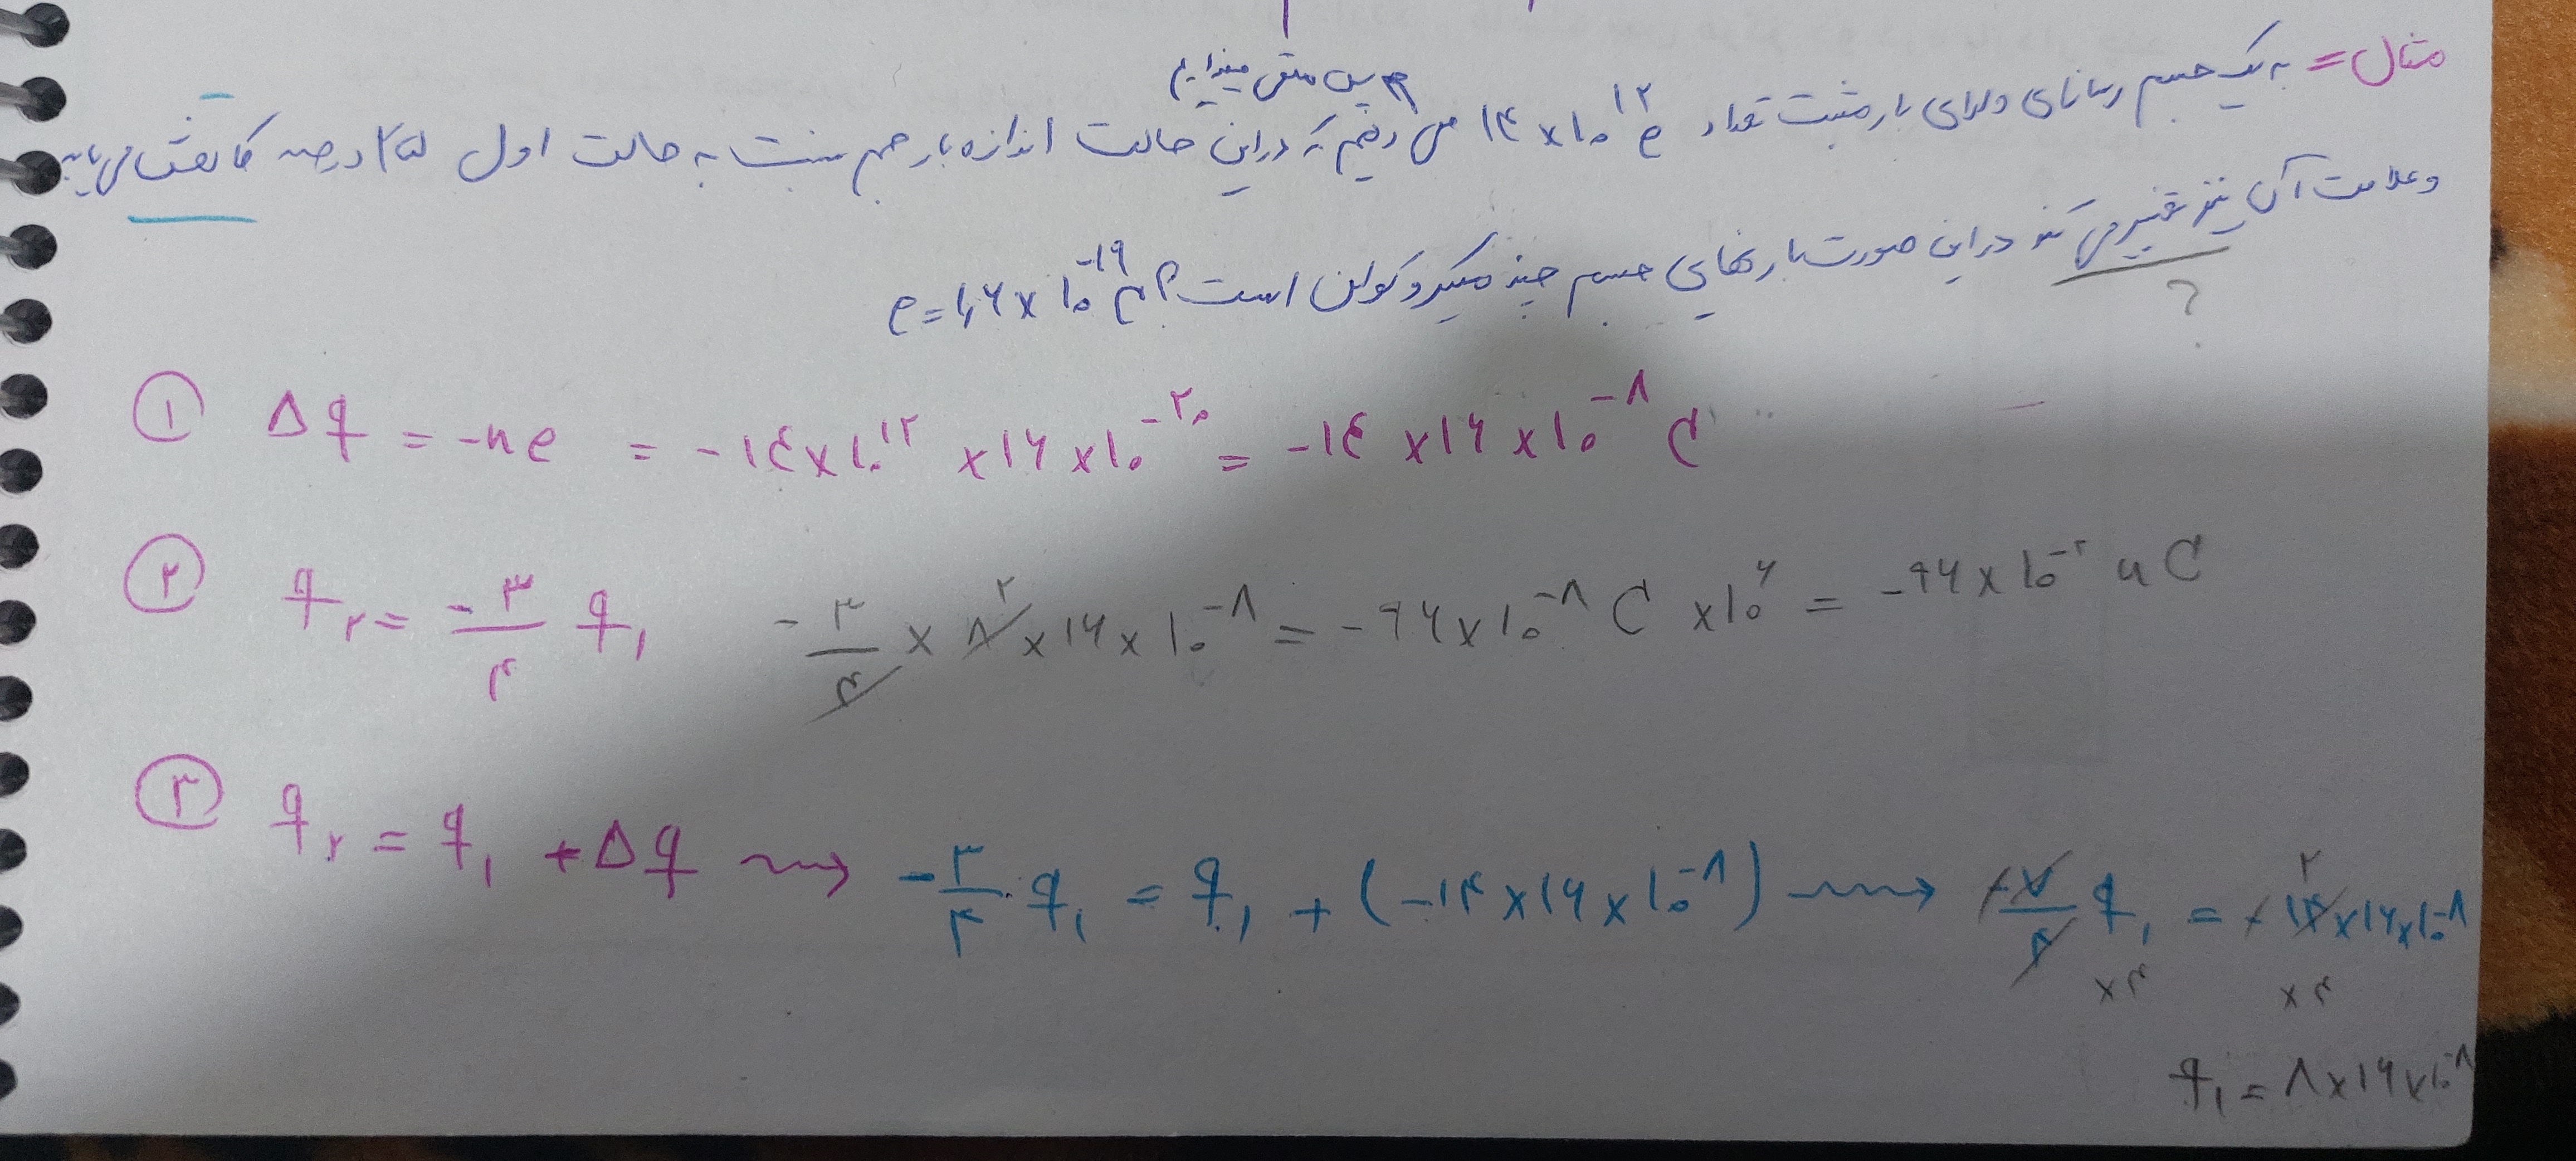 پس منفی میذاریم
مثال = به یک جسم رسانای دارای بار مثبت تعداد ۱۴ × ۱۰^۱۲ e می دهیم که در این حالت اندازه بار جسم نسبت به حالت اول ۲۵ درصد کاهش می یابد
و علامت آن نیز تغییر می کند در این صورت بار نهایی جسم چند میکروکولن است؟ e = ۱,۶ × ۱۰^-۱۹ C
?
① Δq = -ne = -۱۴×۱۰^۱۲ × ۱۶ × ۱۰^-۲۰ = -۱۴ × ۱۶ × ۱۰^-۸ C
② q۲ = -۳/۴ q۱ -۳/۴ × ۸ ۲ × ۱۶ × ۱۰^-۸ = -۹۶ × ۱۰^-۸ C × ۱۰^۶ = -۹۶ × ۱۰^-۲ uC
③ q۲ = q۱ + Δq ⟿ -۳/۴ q۱ = q۱ + (-۱۴ × ۱۶ × ۱۰^-۸) ⟿ -۷/۴ q۱ = -۱۴ ۲ × ۱۶ × ۱۰^-۸
×۴ ×۴
q۱ = ۸ × ۱۶ × ۱۰^-۸